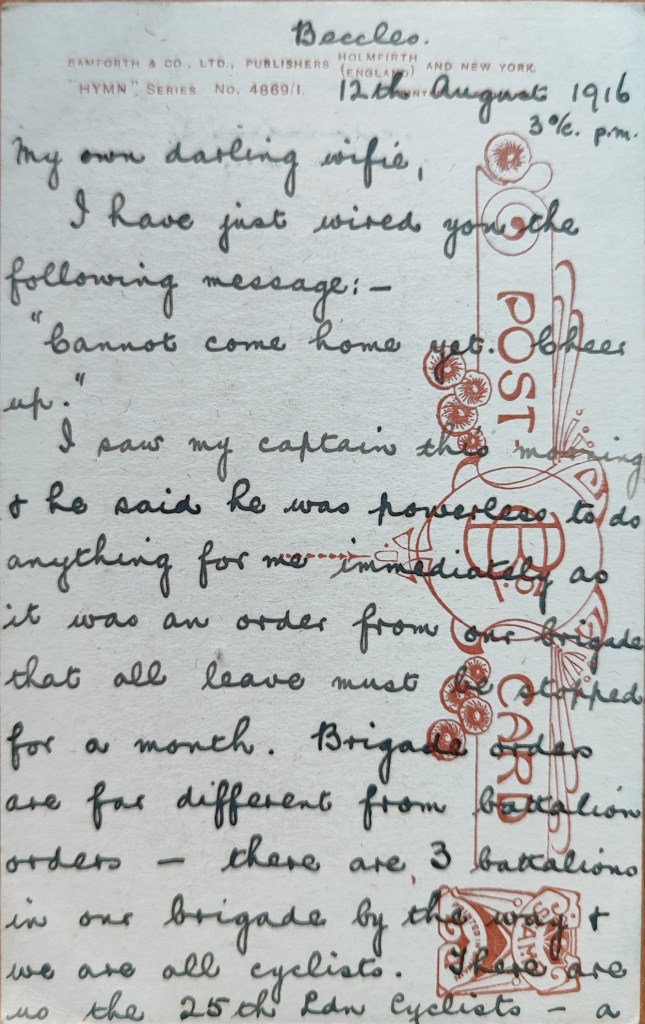 Beccles.
BAMFORTH & CO., LTD., PUBLISHERS HOLMFIRTH (ENGLAND) AND NEW YORK.
"HYMN" SERIES NO. 4869/1.
12th August 1916
3 o/c. p.m.
My own darling wifie,
I have just wired you the
following message:—
"Cannot come home yet. Cheer
up."
I saw my captain this morning
& he said he was powerless to do
anything for me immediately as
it was an order from our brigade
that all leave must be stopped
for a month. Brigade orders
are far different from battalion
orders — there are 3 battalions
in our brigade by the way &
we are all cyclists. There are
us the 25th Ldn Cyclists — a
POST CARD